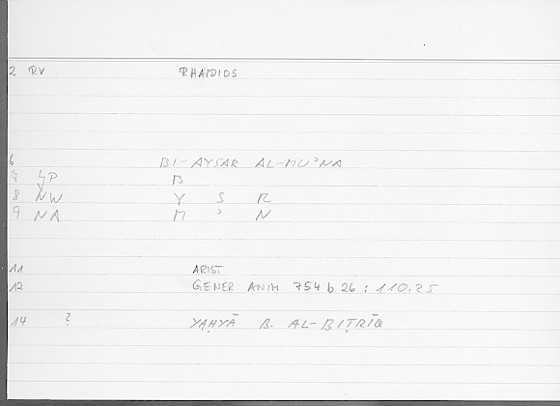 2 RV RHAIDIOS
6 BI-AYSAR AL-MUʾNA
7 LP B
8 NW Y S R
9 NA M ʾ N
11 ARIST
12 GENER ANIM 754 b 26 ; 110.25
14 ? YAḤYĀ B. AL-BIṬRĪQ